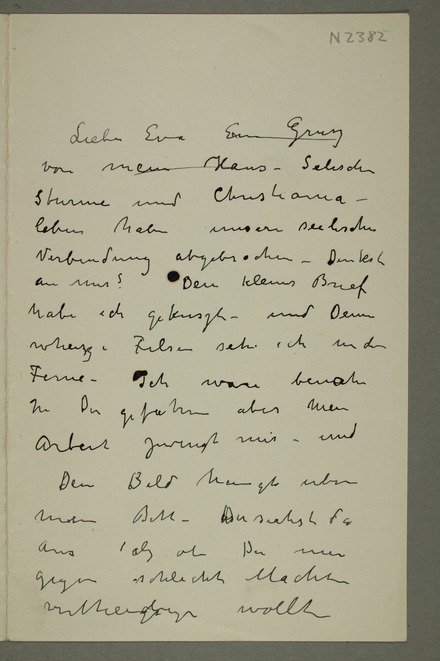 N 2382
Liebe Eva Ein Gruss
von mein Haus – Seelische
Stürme und Christiania –
leben haben unsere seelische
Verbindung abgebrochen – Denkst
an mir? Dein kleines Brief
habe ich gekusst – und Deine
Felsen sehe ich in der
Ferne – Ich ware beinahe
zu Du gefahren aber mein
Arbeit zwingt mir – und
Dein Bild hangt über
mein Bett – Du siehst da
aus als ob Du mir
gegen schlechte Machten
wollte